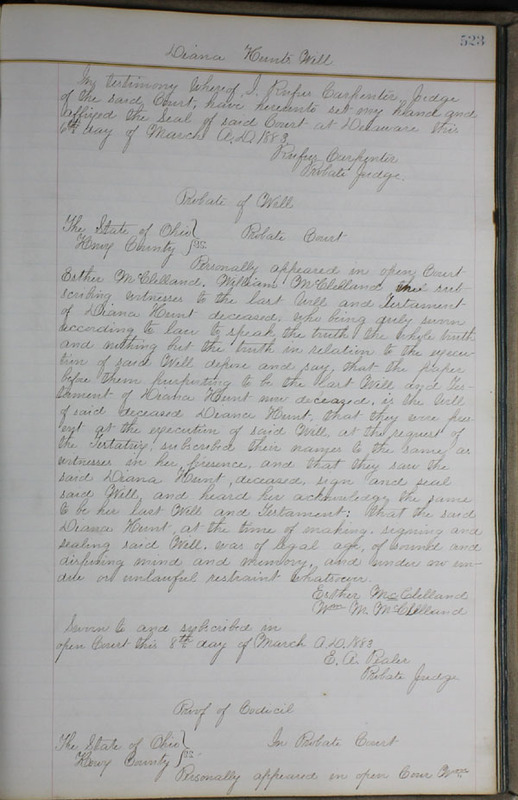 523
Diana Hunts Will
In testimony Whereof I, Rufus Carpenter, Judge
of the said Court, have hereunto set my hand and
affixed the Seal of said Court at Delaware this
6th day of March A.D. 1883
Rufus Carpenter
Probate Judge.
Probate of Will
The State of Ohio } Probate Court
Henry County } SS.
Personally appeared in open Court
Esther McClelland, William McClelland the sub
scribing witnesses to the last Will and Testament
of Diana Hunt deceased, who being duly sworn
according to law to speak the truth the whole truth
and nothing but the truth in relation to the execu-
tion of said Will depose and say, that the paper
before them purporting to be the last Will and Tes-
tament of Diana Hunt now deceased, is the Will
of said deceased Deanca Hunt, that they were pres
ent at the execution of said Will, at the request of
the Testatrix, subscribed their names to the same, as
witnesses in her presence, and that they saw the
said Diana Hunt, deceased, sign and seal
said Will, and heard her acknowledge the same
to be her last Will and Testament; that the said
Diana Hunt, at the time of making, signing and
sealing said Will, was of legal age, of sound and
disposing mind and memory, and under no un-
due or unlawful restraint whatever.
Esther McClelland
Wm. M. McClelland
Sworn to and subscribed in
open Court this 8th day of March A.D. 1883
E. A. Palen
Probate Judge
Proof of Codicil
The State of Ohio } In Probate Court
Henry County } SS.
Personally appeared in open Cour Wm